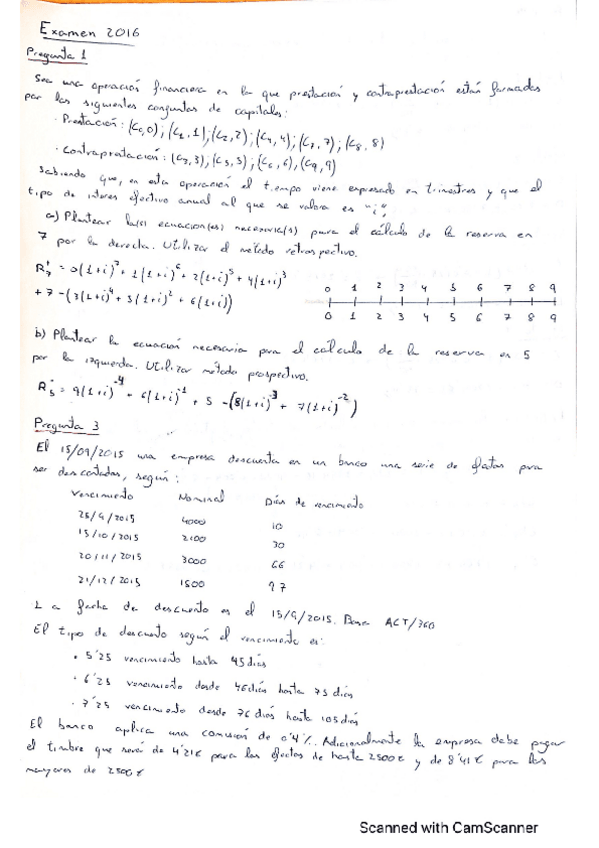 Examen 2016
Pregunta 1
Sea una operación financiera en la que prestación y contraprestación están formadas
por los siguientes conjuntos de capitales:
· Prestación: (C0,0); (C1,1); (C2,2); (C4,4); (C7,7); (C8,8)
· Contraprestación: (C3,3); (C5,5); (C6,6), (C9,9)
Sabiendo que, en esta operación el tiempo viene expresado en trimestres y que el
tipo de interés efectivo anual al que se valora es "i",
a) Plantear la(s) ecuación(es) necesaria(s) para el cálculo de la reserva en
7 por la derecha. Utilizar el método retrospectivo.
R7+ = 0(1+i)^7 + 1(1+i)^6 + 2(1+i)^5 + 4(1+i)^3
+ 7 - (3(1+i)^4 + 5(1+i)^2 + 6(1+i))
0 1 2 3 4 5 6 7 8 9
0 1 2 3 4 5 6 7 8 9
b) Plantear la ecuación necesaria para el cálculo de la reserva en 5
por la izquierda. Utilizar método prospectivo.
R5- = 9(1+i)^-4 + 6(1+i)^-1 + 5 - (8(1+i)^-3 + 7(1+i)^-2)
Pregunta 3
El 15/09/2015 una empresa descuenta en un banco una serie de efectos para
ser descontados, según:
Vencimiento Nominal Días de vencimiento
25/9/2015 4000 10
15/10/2015 2100 30
20/11/2015 3000 66
21/12/2015 1500 97
La fecha de descuento es el 15/9/2015. Base ACT/360
El tipo de descuento según el vencimiento es:
· 5'25 vencimiento hasta 45 días
· 6'25 vencimiento desde 46 días hasta 75 días
· 7'25 vencimiento desde 76 días hasta 105 días
El banco aplica una comisión de 0'4%. Adicionalmente la empresa debe pagar
el timbre que será de 4'21€ para los efectos de hasta 2500€ y de 8'41€ para los
mayores de 2500€
Scanned with CamScanner